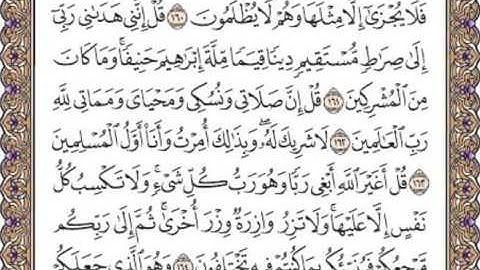 فَلَا يُجْزَىٰٓ إِلَّا مِثْلَهَا وَهُمْ لَا يُظْلَمُونَ ١٦٠ قُلْ إِنَّنِى هَدَىٰنِى رَبِّىٓ
إِلَىٰ صِرَٰطٍ مُّسْتَقِيمٍ دِينًا قِيَمًا مِّلَّةَ إِبْرَٰهِيمَ حَنِيفًا ۚ وَمَا كَانَ
مِنَ ٱلْمُشْرِكِينَ ١٦١ قُلْ إِنَّ صَلَاتِى وَنُسُكِى وَمَحْيَاىَ وَمَمَاتِى لِلَّهِ
رَبِّ ٱلْعَٰلَمِينَ ١٦٢ لَا شَرِيكَ لَهُۥ ۖ وَبِذَٰلِكَ أُمِرْتُ وَأَنَا۠ أَوَّلُ ٱلْمُسْلِمِينَ
١٦٣ قُلْ أَغَيْرَ ٱللَّهِ أَبْغِى رَبًّا وَهُوَ رَبُّ كُلِّ شَىْءٍ ۚ وَلَا تَكْسِبُ كُلُّ
نَفْسٍ إِلَّا عَلَيْهَا ۚ وَلَا تَزِرُ وَازِرَةٌ وِزْرَ أُخْرَىٰ ۚ ثُمَّ إِلَىٰ رَبِّكُم
مَّرْجِعُكُمْ فَيُنَبِّئُكُم بِمَا كُنتُمْ فِيهِ تَخْتَلِفُونَ ١٦٤ وَهُوَ ٱلَّذِى جَعَلَكُمْ